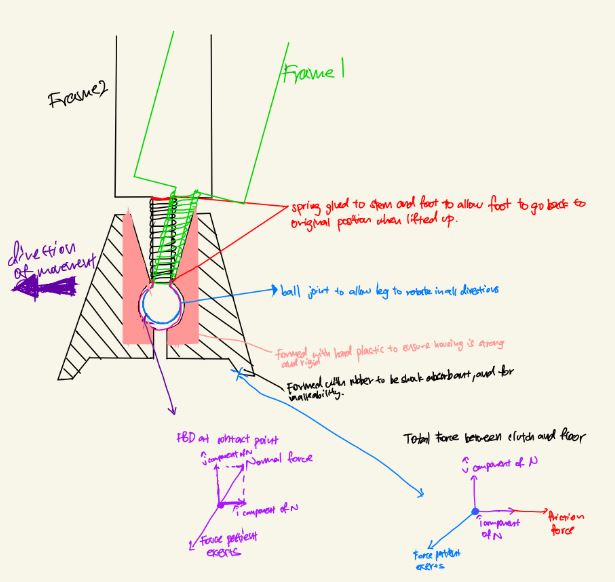 Frame 1
Frame 2
spring glued to stem and foot to allow foot to go back to
original position when lifted up.
direction
of movement
ball joint to allow leg to rotate in all directions
Formed with hard plastic to ensure housing is strong
and rigid
Formed with rubber to be shock absorbant, and for
malleability.
FBD at contact point
ĵ component of N
Normal force
î component of N
Force patient
exerts
Total Force between clutch and floor
ĵ component of N
î component
of N
friction
force
Force patient
exerts